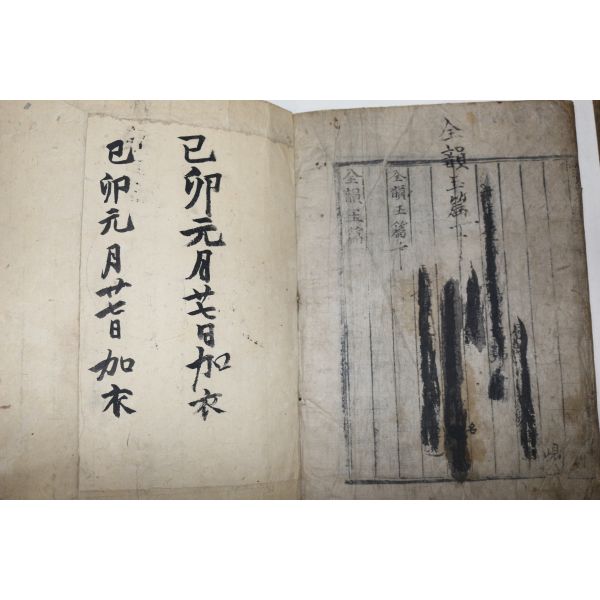 全韻玉篇
全韻玉篇
全韻玉篇
峴
己卯元月廿七日加衣
己卯元月廿七日加衣